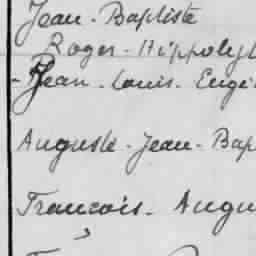 Jean - Baptiste
Roger - Hippolyt
- Jean - Louis - Eugé
Auguste - Jean - Bap
François - Augu